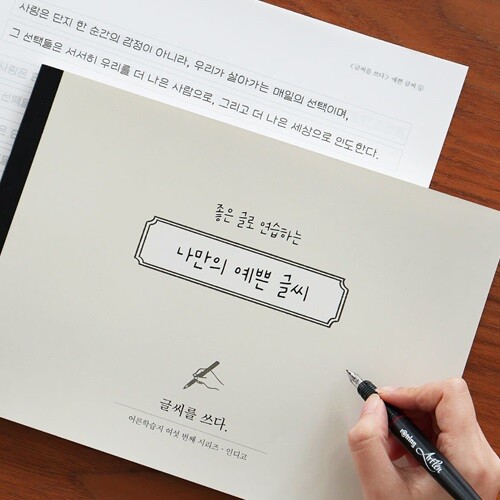 사랑은 단지 한 순간의 감정이 아니라, 우리가 살아가는 매일의 선택이며,
<글씨를 쓰다> 예쁜 글씨
그 선택들은 서서히 우리를 더 나은 사람으로, 그리고 더 나은 세상으로 인도한다.
좋은 글로 연습하는
나만의 예쁜 글씨
글씨를 쓰다.
어른학습지 여섯 번째 시리즈 · 인디고